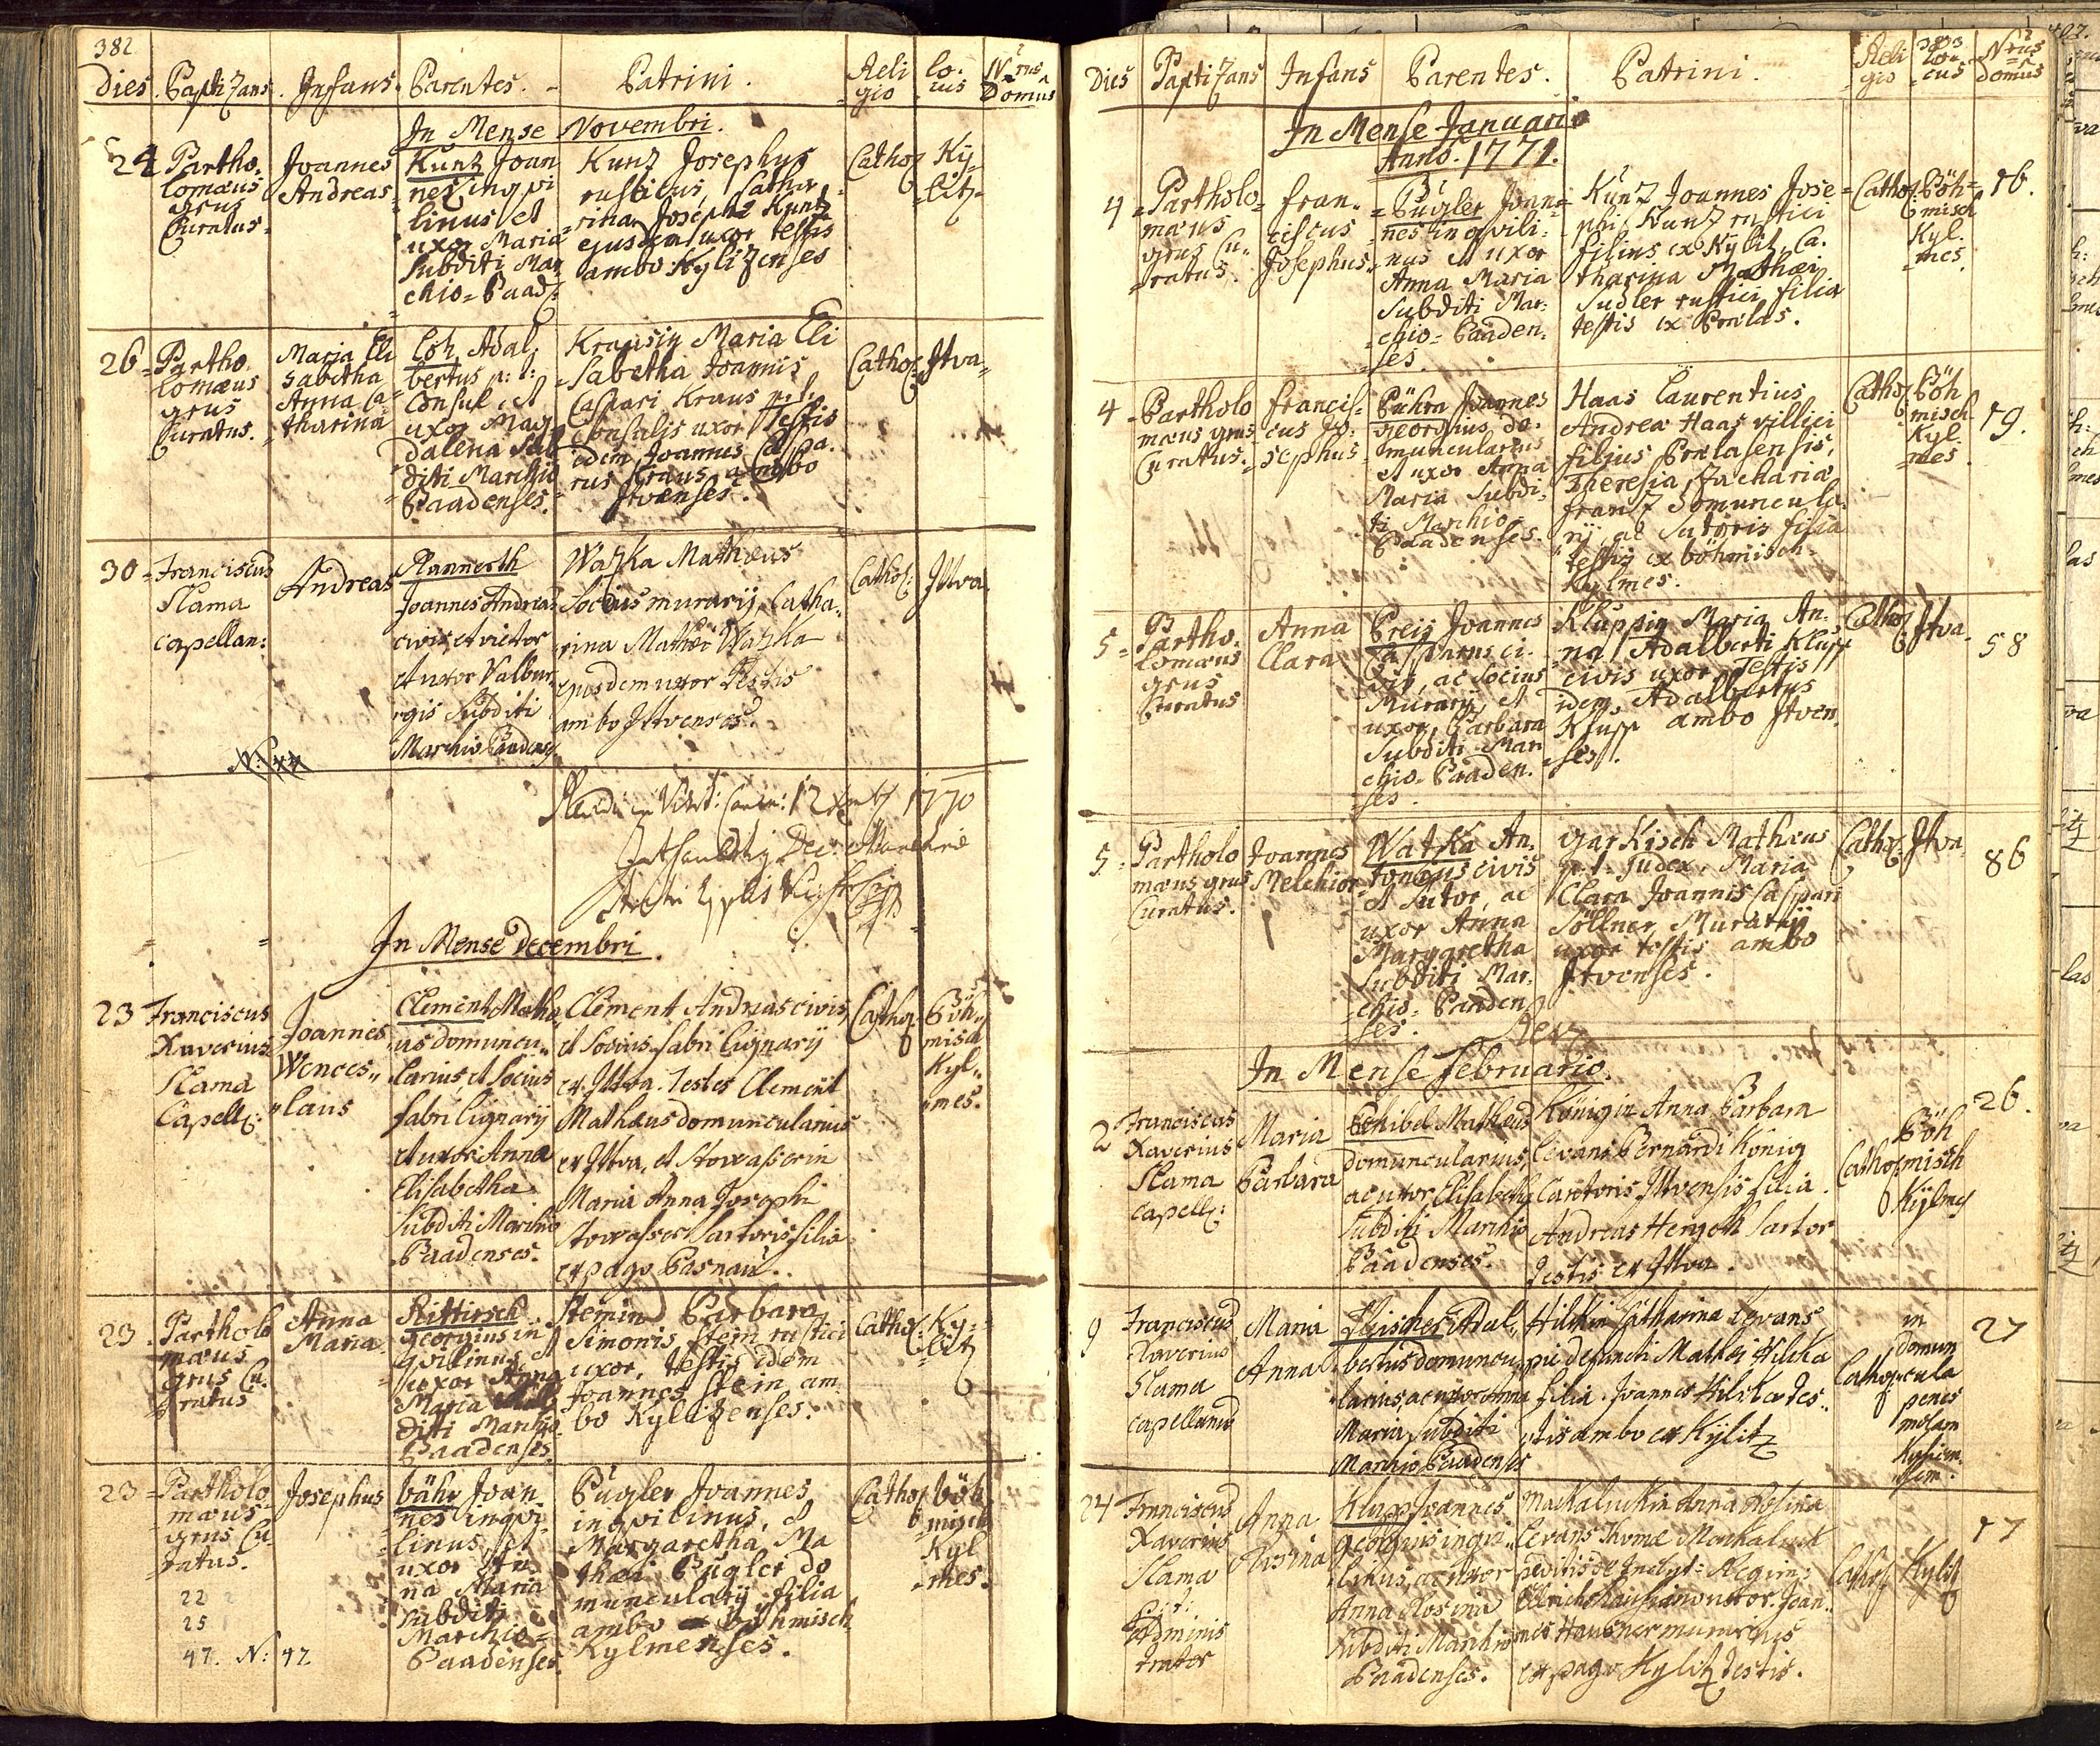 382
Dies. Baptizans. Infans. Parentes. Patrini. Reli gio Lo- cus Nrus Domus
In Mense Novembri.
24 Bartho-
lomæus
grus
Curatus
Joannes
Andreas
Kuntz Joan
nes inqvi
linus et
uxor Maria
subditi Mar
chio-Baad:
Kunz Josephus
rusticus, Catha-
rina Josephi Kuntz
ejusdem uxor testis
ambo Kylitzenses
Cathol
Ky-
litz
26 Bartho-
lomæus
grus
Curatus.
Maria Eli
sabetha
Anna Ca-
tharina
Löh Adal-
bertus p: t:
Consul, et
uxor Mag
dalena Sub
diti Marchio
Baadenses.
Krausin Maria Eli
sabetha Joannis
Caspari Kraus p: t:
Consulis uxor Testis
idem Joannes Caspa-
rus Kraus, ambo
Itvenses.
Cathol:
Itva
30 Franciscus
Slama
capellan:
Andreas
Plannerth
Joannes Andreas
civis et vietor
et uxor Valbur
rgis Subditi
Marchio Baadens:
Watzka Mathæus
Socius murarij, Catha-
rina Mathæi Watzka
ejusdem uxor Testis
ambo Ittvenses.
Cathol:
Ittva
In Mense Decembri.
23 Franciscus
Xaverius
Slama
Capell:
Joannes
Wences-
laus
Clement Mathæ
us domuncu-
larius et Socius
fabri lignarij
et uxor Anna
Elisabetha
Subditi Marchio
Baadenses.
Clement Andreas civis,
et Socius fabri lignarij
ex Ittva. Testes Clement
Mathæus domuncularius
ex Ittva, et Stowasserin
Maria Anna Josephi
Stowasser Sartoris filia
ex pago Pasnau.
Cathol
Böh-
misch
Kyl-
mes.
23 Bartholo
mæus
grus Cu-
ratus
Anna
Maria
Rittirsch
Georgius in
qvilinus et
uxor Anna
Maria Sub
diti Marchio
Baadenses
Stemin Barbara
Simonis Stein rustici
uxor, testis idem
Joannes Stein am
bo Kylitzenses.
Cathol:
Ky-
litz
23 Bartholo
mæus
grus Cu
ratus.
Josephus
bähr Joan-
nes inqvi-
linus, et
uxor An-
na Maria
subditi
Marchio-
Baadenses.
Bugler Joannes
inqvilinus, et
Margaretha Ma
thæi Bugler do
muncularij filia
ambo böhmisch
Kylmenses.
Cathol
böh
misch
Kyl
mes.
22
25
47. N: 47
Dies Baptizans Infans Parentes. Patrini. Reli gio Lo- cus Nrus Domus
In Mense Januario
Anno. 1771.
4 Bartholo-
mæus
grus Cu-
ratus.
Fran-
ciscus
Josephus
Bugler Joan-
nes inqvili-
nus et uxor
Anna Maria
subditi Mar-
chio-Baaden-
ses.
Kunz Joannes Jose-
phi Kunz rustici
filius ex Kylitz, Ca-
tharina Mathæi
Sudler rustici filia
testis ex Pralas.
Cathol:
Böh-
misch
Kyl-
mes.
16.
4 Bartholo
mæus grus
Curatus.
Francis-
cus Jo-
sephus
Bährn Joannes
Georgius, do-
muncularius
et uxor Anna
Maria Subdi-
ti Marchio-
Baadenses.
Haas Laurentius
Andreæ Haas villici
filius Pralasensis,
Theresia Zachariæ
Franz domuncula
rij, ac Sutoris filia
testis ex böhmisch-
Kylmes.
Cathol
Böh
misch
Kyl-
mes
19.
5 Bartho-
lomæus
grus
Curatus
Anna
Clara
Preis Joannes
Casparus ci-
vis, ac Socius
Murarij, et
uxor, Barbara
Subditi Mar
chio-Baaden-
ses.
Kluppin Maria An-
na Adalberti Klupp
civis uxor Testis
idem Adalbertus
Klupp ambo Itven-
ses.
Cathol
Itva-
58
5 Bartholo
mæus grus
Curatus.
Joannes
Melchior
Watzka An-
tonius civis
et Sutor, ac
uxor Anna
Margaretha
Subditi Mar-
chio-Baaden-
ses.
Garkisch Mathæus
p. t. Judex, Maria
Clara Joannis Caspari
Söllner Murarij
uxor testis ambo
Itvenses.
Cathol:
Itva
86
In Mense Februario.
2 Franciscus
Xaverius
Slama
Capell:
Maria
Barbara
Schibel Mathæus
domuncularius,
ac uxor Elisabetha
Subditi Marchio
Baadenses.
Königin Anna Barbara
Levans Bernardi König
Cantoris Ittvensis filia.
Andreas Hergeth Sartor
Testis ex Ittva.
Cathol
Böh
misch
Kylmes
26.
9 Franciscus
Xaverius
Slama
Capellanus
Maria
Anna
Fleischer Adal-
bertus domuncu
larius, ac uxor Anna
Maria, Subditi
Marchio Baadenses
Hilkin Catharina Levans
pie defuncti Mathæi Hilka
filia. Joannes Hilka Tes-
tis ambo ex Kylitz
Cathol
in
domun
cula
penes
molam
27
24 Franciscus
Xaverius
Slama
p: t:
Adminis
trator
Anna
Rosina
Klupp Joannes
Georgius inqui-
linus, ac uxor
Anna Rosina
Subditi Marchio
Baadenses.
Makaluckin Anna Rosina
Levans Thomæ Makaluck
peditis de Inclyt: Regim:
uxor. Joan-
nes Hausner murarius
ex pago Kylitz testis.
Cathol
Kylitz
17